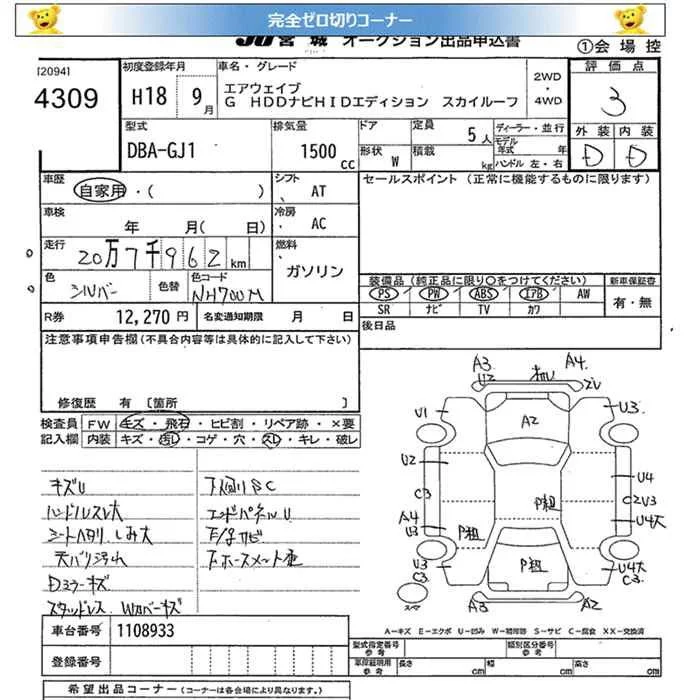 完全ゼロ切りコーナー
JU宮城 オークション出品申込書
①会場控
[2094]
4309
初度登録年月
H18 9月
車名・グレード
エアウェイブ
G HDDナビHIDエディション スカイルーフ
2WD
・
4WD
評価点
3
外装 内装
D D
型式
DBA-GJ1
排気量
1500cc
ドア
形状 W
定員 5人
積載 kg
ディーラー・並行
モデル年式 年
ハンドル 左・右
車歴
自家用・( )
シフト
AT
セールスポイント (正常に機能するものに限ります)
車検
年 月( 日)
冷房
AC
走行
20万7千962km
燃料
ガソリン
色
シルバー
色替
色コード
NH700M
装備品 (純正品に限り○をつけてください)
新車保証書
PS PW ABS エアB AW
SR ナビ TV カワ
有・無
R券 12,270円
名変通知期限 月 日
後日品
注意事項申告欄(不具合内容等は具体的に記入して下さい)
修復歴 有 [箇所
検査員
記入欄
FW キズ・飛石・ヒビ割・リペア跡・×要
内装 キズ・汚れ・コゲ・穴・スレ・キレ・破レ
キズU
ハンドルスレ大
シートヘタリ、しみ大
天バリ汚れ
Dミラーキズ
スタッドレス Wカバーキズ
下回りSC
エンドパネルU
A3
U2
A4
U1
A2
U3
U2
C3
A4
U3
P粗
P粗
P粗
U4
C2U3
U4大
U3
C3
U4大
C3
A3
A2
A-キズ E-エクボ U-凹み W-補修跡 S-サビ C-腐食 XX-交換済
車台番号 1108933
登録番号
型式指定番号
参考
類別区分番号
参考
車庫証明用
参考
長さ cm
幅 cm
高さ cm
希望出品コーナー (コーナーは各会場により異なります。)